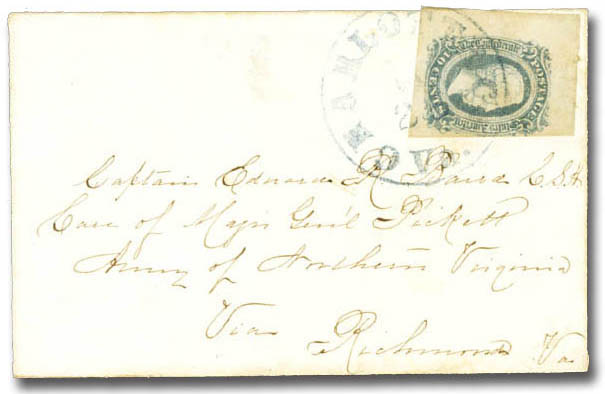 CHARLOTTE
VA.
The Confederate
POSTAGE
States America
10 CENTS
Captain Edward R. Baird C.S.A
Care of Majr Genl Pickett
Army of Northern Virginia
Via Richmond Va